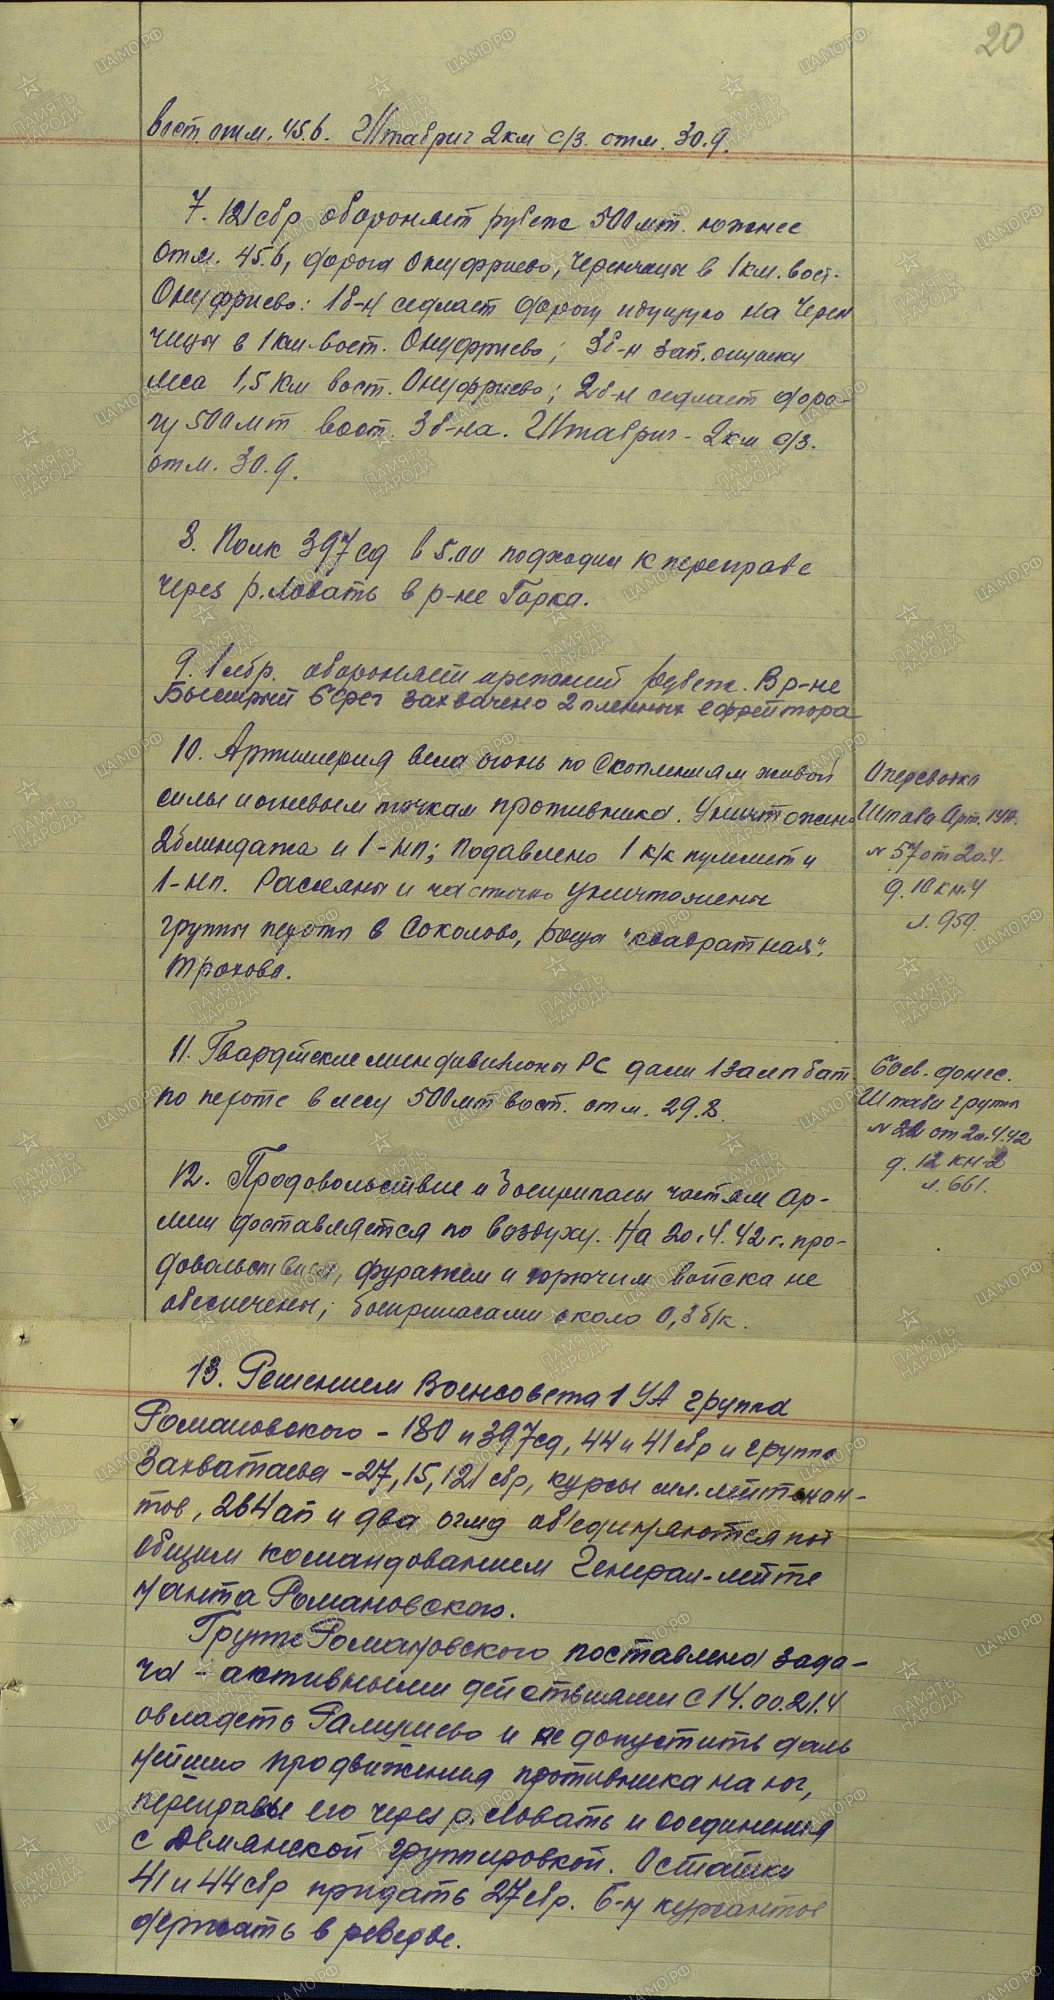 20
вост. отм. 45.6. Штабриг 2км с/з. отм. 30.9.
7. 121 сбр обороняет рубеж 500 мт. южнее
отм. 45.6, дорога Онуфриево, Черенчицы в 1 км. вост.
Онуфриево: 1 б-н седлает дорогу идущую на Черен
чицы в 1 км вост. Онуфриево; 3 б-н зап. опушку
леса 1,5 км вост. Онуфриево; 2 б-н седлает доро-
гу 500 мт вост. 3 б-на. Штабриг - 2 км с/з.
отм. 30.9.
8. Полк 397 сд в 5.00 подходил к переправе
через р. Ловать в р-не Горка.
9. 1 мбр. обороняет прежний рубеж. В р-не
Быстрый берег захвачено 2 пленных ефрейтора
10. Артиллерия вела огонь по скоплениям живой
силы и огневым точкам противника. Уничтожен
2 блиндажа и 1-нп; Подавлено 1 к/к пулемет и
1-нп. Рассеяны и частично уничтожены
группы пехоты в Соколово, роща "квадратная",
Трохово.
Оперсводка
Штаба Арт. 1УА.
N 57 от 20.4.
д. 10 кн. 4
л. 959.
11. Гвардейские миндивизионы РС дали 1 залп бат.
по пехоте в лесу 500 мт вост. отм. 29.8.
Боев. донес.
Штаба группы
N 22 от 20.4.42
д. 12 кн-2
л. 661.
12. Продовольствие и боеприпасы частям ар-
мии доставляется по воздуху. На 20.4.42 г. про-
довольствием, фуражем и горючим войска не
обеспечены; боеприпасами около 0,3 б/к.
13. Решением Военсовета 1 УА группа
Романовского - 180 и 397 сд, 44 и 41 сбр и группа
Захватаева - 27, 15, 121 сбр, курсы мл. лейтенан-
тов, 264 ап и два огмд об'единяются под
общим командованием Генерал-лейте
нанта Романовского.
Группе Романовского поставлена зада-
ча - активными действиями с 14.00.21.4
овладеть Рамушево и не допустить даль
нейшего продвижения противника на юг,
переправы его через р. Ловать и соединения
с Демянской группировкой. Остатки
41 и 44 сбр придать 27 сбр. Б-н курсантов
держать в резерве.